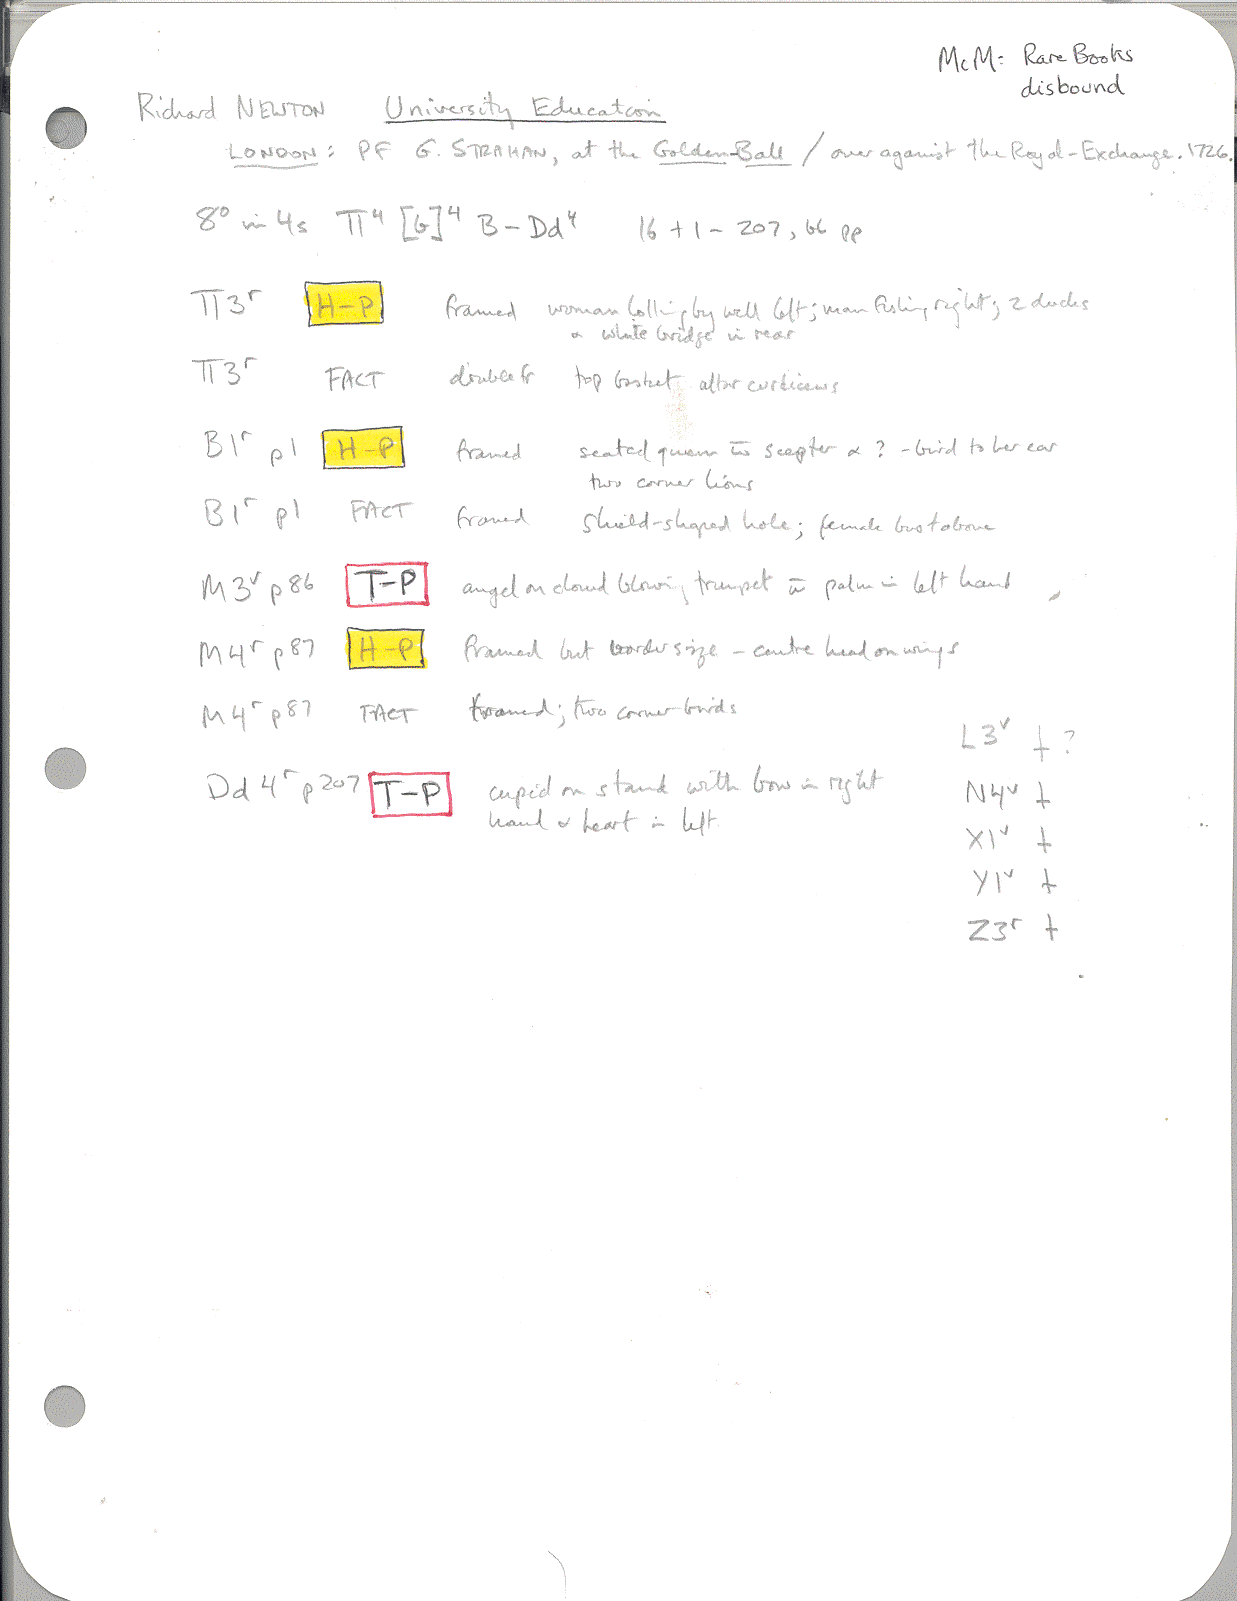 McM: Rare Books
disbound
Richard NEWTON University Education
LONDON: PF G. STRAHAN, at the Golden-Ball / over against the Royal-Exchange. 1726.
8° in 4s π⁴ [G]⁴ B-Dd⁴ 16 + 1-207, bb pp
π3ʳ H-P framed woman lolling by well left; man fishing right; 2 ducks
& white bridge in rear
π3ʳ FACT double fr top basket altar curlicews
B1ʳ p1 H-P framed seated queen w̄ scepter & ? - bird to her ear
two corner lions
B1ʳ p1 FACT framed shield-shaped hole; female bust above
M3ᵛ p86 T-P angel on cloud blowing trumpet w̄ palm in left hand
M4ʳ p87 H-P framed but border size - centre head on wings
M4ʳ p87 FACT framed; two corner-birds
Dd 4ʳ p207 T-P cupid on stand with bow in right
hand & heart in left.
L3ᵛ † ?
N4ᵛ †
X1ᵛ †
Y1ᵛ †
Z3ʳ †